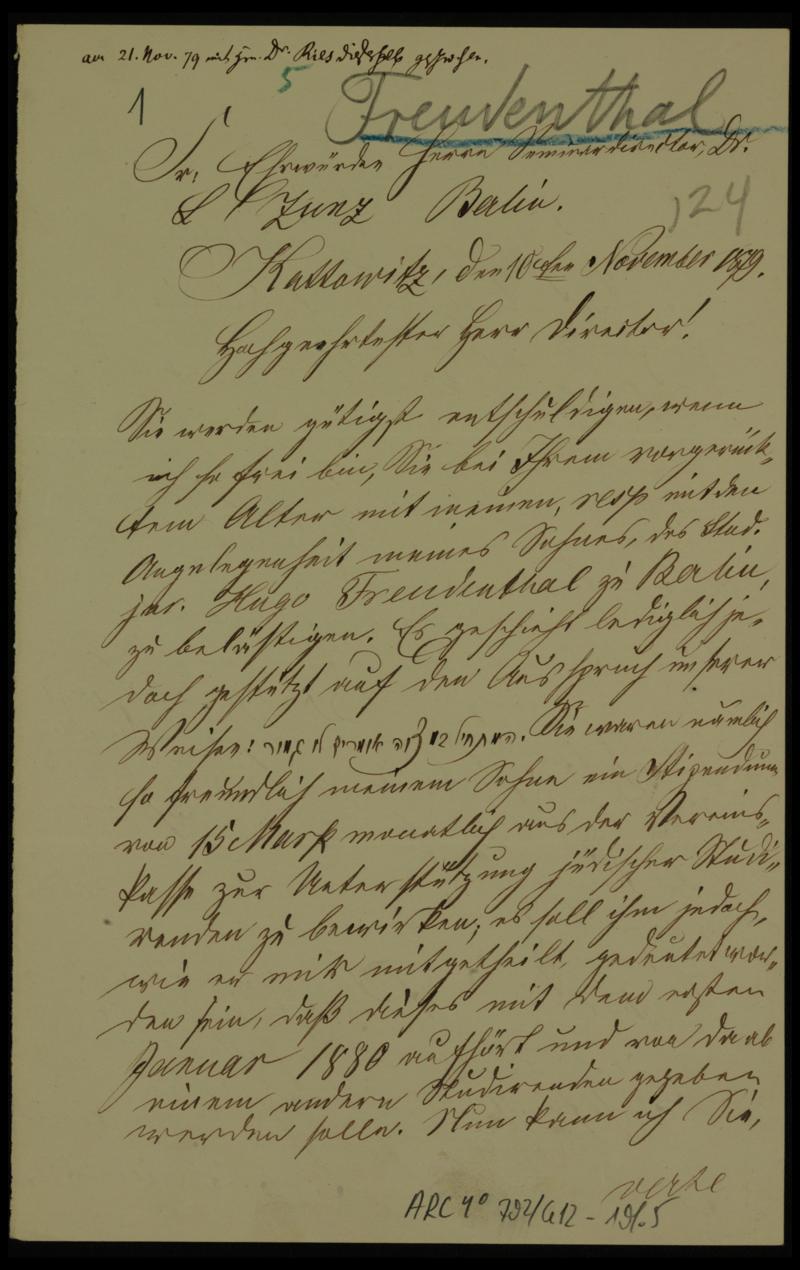 am 21. Nov. 79 mit Hrn. Dr. Ries dieshalb gesprochen.
5
1
Freudenthal
Sr. Ehrwürden Herrn Seminardirector, Dr.
L Zunz Berlin.
124
Kattowitz, den 10ten November 1879.
Hochgeehrtester Herr Director!
Sie werden gütigst entschuldigen, wenn
ich so frei bin, Sie bei Ihrem vorgerück-
tem Alter mit meinen, resp mit den
Angelegenheit meines Sohnes, des Stud.
jur. Hugo Freudenthal zu Berlin,
zu belästigen. Es geschieht lediglich je-
doch gestützt auf den Ausspruch unserer
Weisen: המתחיל במצוה אומרים לו גמור. Sie waren nämlich
so freundlich meinem Sohne ein Stipendium
von 15 Mark monatlich aus der Vereins-
kasse zur Unterstützung jüdischer Studi-
renden zu bewirken; es soll ihm jedoch,
wie er mir mitgetheilt, gedeutet wor-
den sein, daß dieses mit dem ersten
Januar 1880 aufhört und von da ab
einem andern Studirenden gegeben
werden solle. Nun kann ich Sie,
verte
ARC 4° 792/G12-19/.5